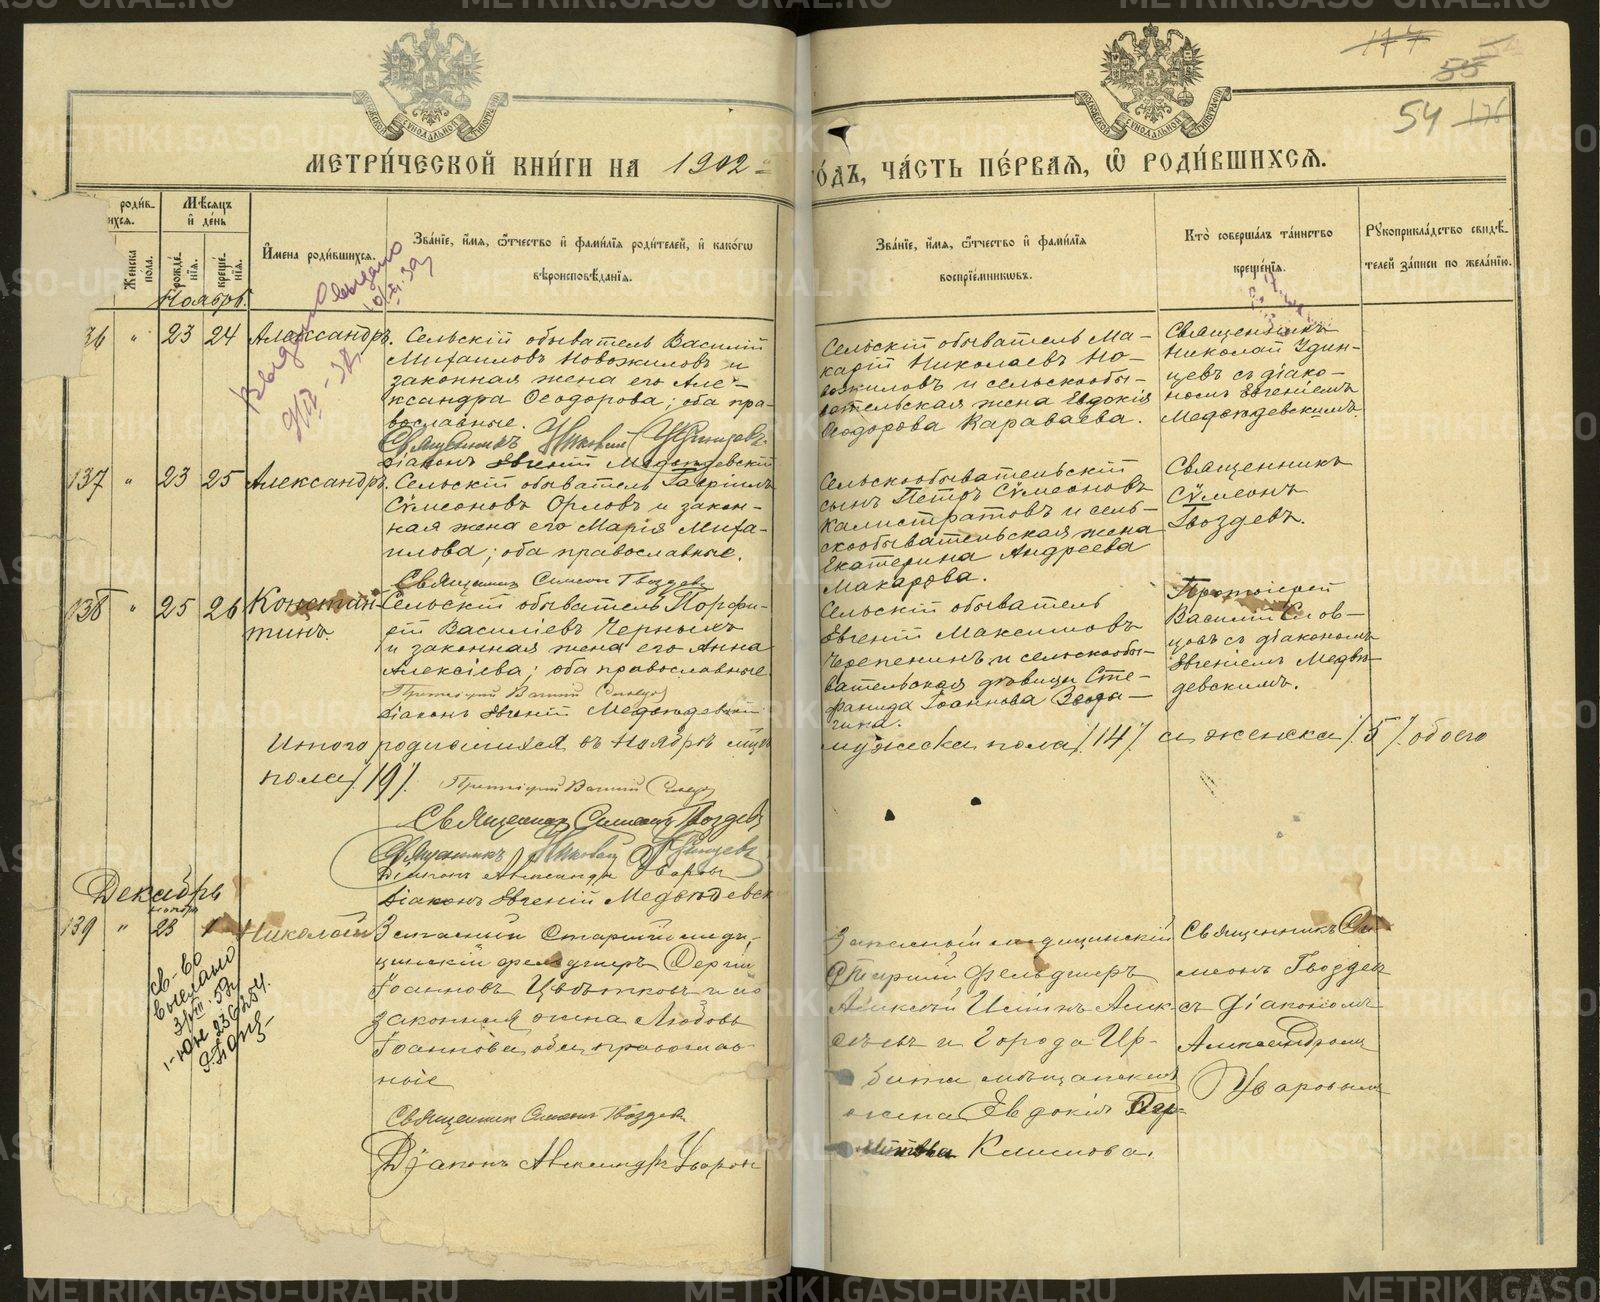 МЕТРИ́ЧЕСКОЙ КНИ́ГИ НА 1902
ГО́ДЪ, ЧА́СТЬ ПЕ́РВАЯ, Ѡ҆ РОДИ́ВШИХСЯ.
54
Мѣсяцъ и҆ де́нь
Же́нска пола.
рожде́нїя.
креще́нїя.
И҆мена роди́вшихся.
Зва́нїе, и҆́мя, ѻ҆́тчество и҆ фами́лїя роди́телей, и҆ како́гѡ
вѣроисповѣ́данїя.
Зва́нїе, и҆́мя, ѻ҆́тчество и҆ фами́лїя
воспрїе́мниковъ.
Кто̀ соверша́лъ та́инство
креще́нїя.
Рꙋкоприкла́дство свидѣ́-
телей за́писи по жела́нїю.
Ноябрь.
36 " 23 24 Александръ.
Сельскій обыватель Василій
Михаиловъ Новожиловъ и
законная жена его Але-
ксандра Ѳеодорова; оба пра-
вославные.
Священникъ Николай Удинцевъ
Діаконъ Евгеній Медвѣдевскій
Сельскій обыватель Ма-
карій Николаевъ Но-
вожиловъ и сельскообы-
вательская жена Евдокія
Ѳеодорова Караваева.
Священникъ
Николай Удин-
цевъ съ діако-
номъ Евгеніемъ
Медвѣдевскимъ.
137 " 23 25 Александръ.
Сельскій обыватель Гавріилъ
Сѵмеоновъ Орловъ и закон-
ная жена его Марія Миха-
илова; оба православные.
Священник Симеон Гвоздев
Сельскообывательскій
сынъ Петръ Сѵмеоновъ
Калистратовъ и сель-
скообывательская жена
Екатерина Андреева
Макарова.
Священникъ
Сѵмеонъ
Гвоздевъ.
138 " 25 26 Констан-
тинъ.
Сельскій обыватель Порфи-
рій Василіевъ Черныхъ
и законная жена его Анна
Алексіева; оба православные.
Протоіерей Василій Словцов
Діаконъ Евгеній Медвѣдевскій
Сельскій обыватель
Евгеній Максимовъ
Черепенинъ и сельскообы-
вательская дѣвица Сте-
фанида Іоаннова
Протоіерей
Василій Слов-
цовъ съ діакономъ
Евгеніемъ Медвѣ-
девскимъ.
Итого родившихся въ Ноябрѣ мцѣ мужеска пола /14/ и женска /5/ обоего
пола /19/.
Протоіерей Василій Словцов
Священник Симеонъ Гвоздев
Священникъ Николай Удинцевъ
Діаконъ Александръ Уваровъ
Діаконъ Евгеній Медвѣдевск
Декабрь
ноябрь
139 " 23 1 Николай
Запасный Старшій меди-
цинскій фельдшеръ Сергій
Іоанновъ Цвѣтковъ и его
законная жена Любовь
Іоаннова, оба православ-
ные
Священник Симеонъ Гвоздев
Діаконъ Александръ Уваров
Запасный медицинскій
Старшій Фельдшеръ
и города Ир-
бита мѣщанская
жена Евдокія
Климова.
Священникъ Си-
меонъ Гвоздев
съ Діакономъ
Александромъ
Уваровымъ
METRIKI.GASO-URAL.RU